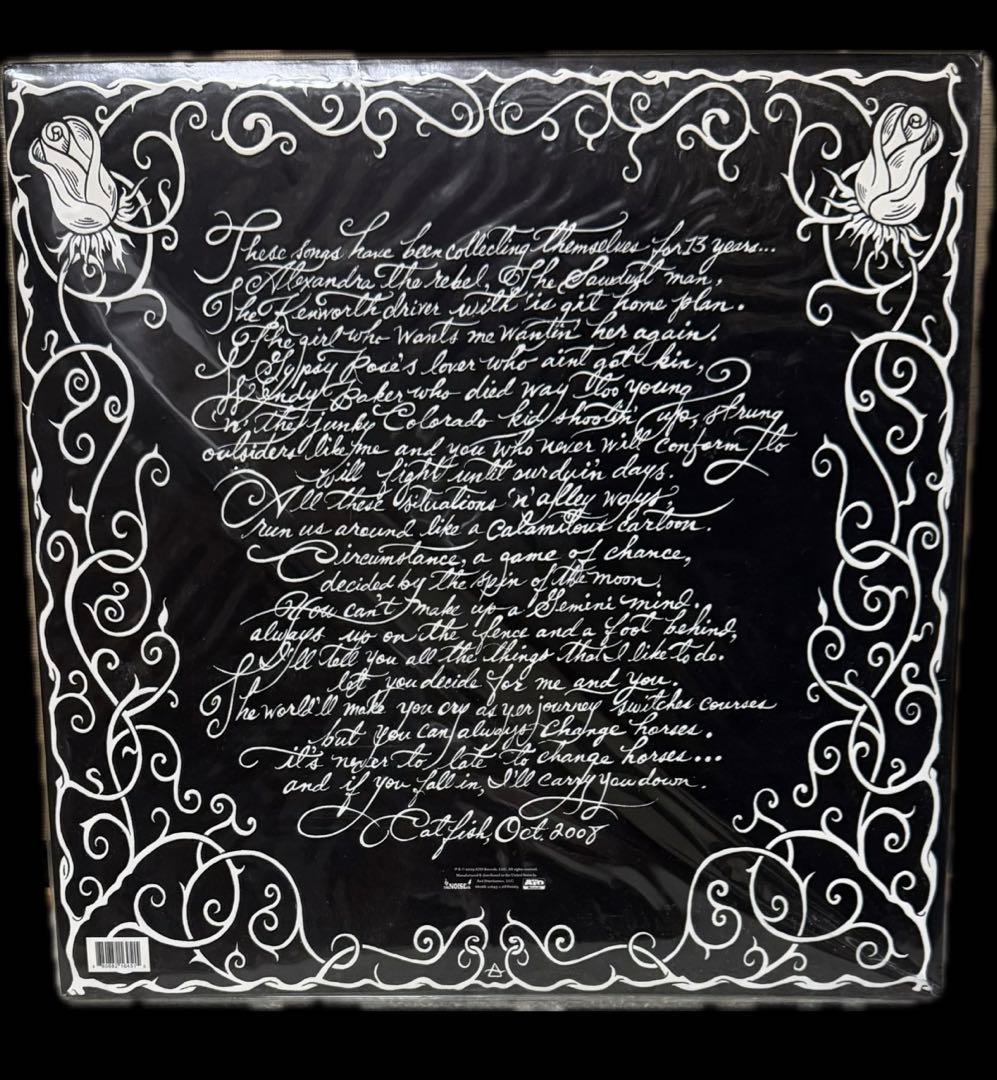 These songs have been collecting themselves for 13 years...
Alexandra the rebel, The Sawdust man,
The Kenworth driver with 'is git home plan.
The girl who wants me wantin' her again.
Gypsy Rose's lover who aint got kin,
Wendy Baker who died way too young
'n' the junky Colorado kid shootin' up, strung
outsiders like me and you who never will conform to
will fight until our dyin days.
All these situations 'n' alley ways,
run us around like a calamitous cartoon.
Circumstance, a game of chance,
decided by the spin of the moon.
You can't make up a Gemini mind.
always up on the fence and a foot behind,
I'll tell you all the things that I like to do.
let you decide for me and you.
The world'll make you cry as yer journey switches courses
but you can always change horses.
it's never to late to change horses...
and if you fall in, I'll carry you down.
Catfish, Oct. 2008
P & © 2009 ATO Records, LLC. All rights reserved.
Manufactured & distributed in the United States by
NOISE
ATO